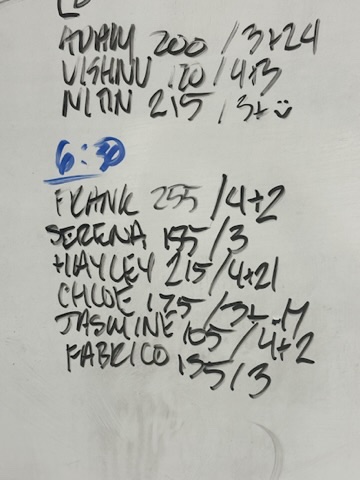 ADAM 200 /3+24
VISHNU 170 /4+3
NITIN 215 /3+ :)
6:30
FRANK 255 /4+2
SERENA 155 /3
HAYLEY 215 /4+21
CHLOE 175 /3+ 14
JASMINE 165 /4+2
FABRICO 155 /3